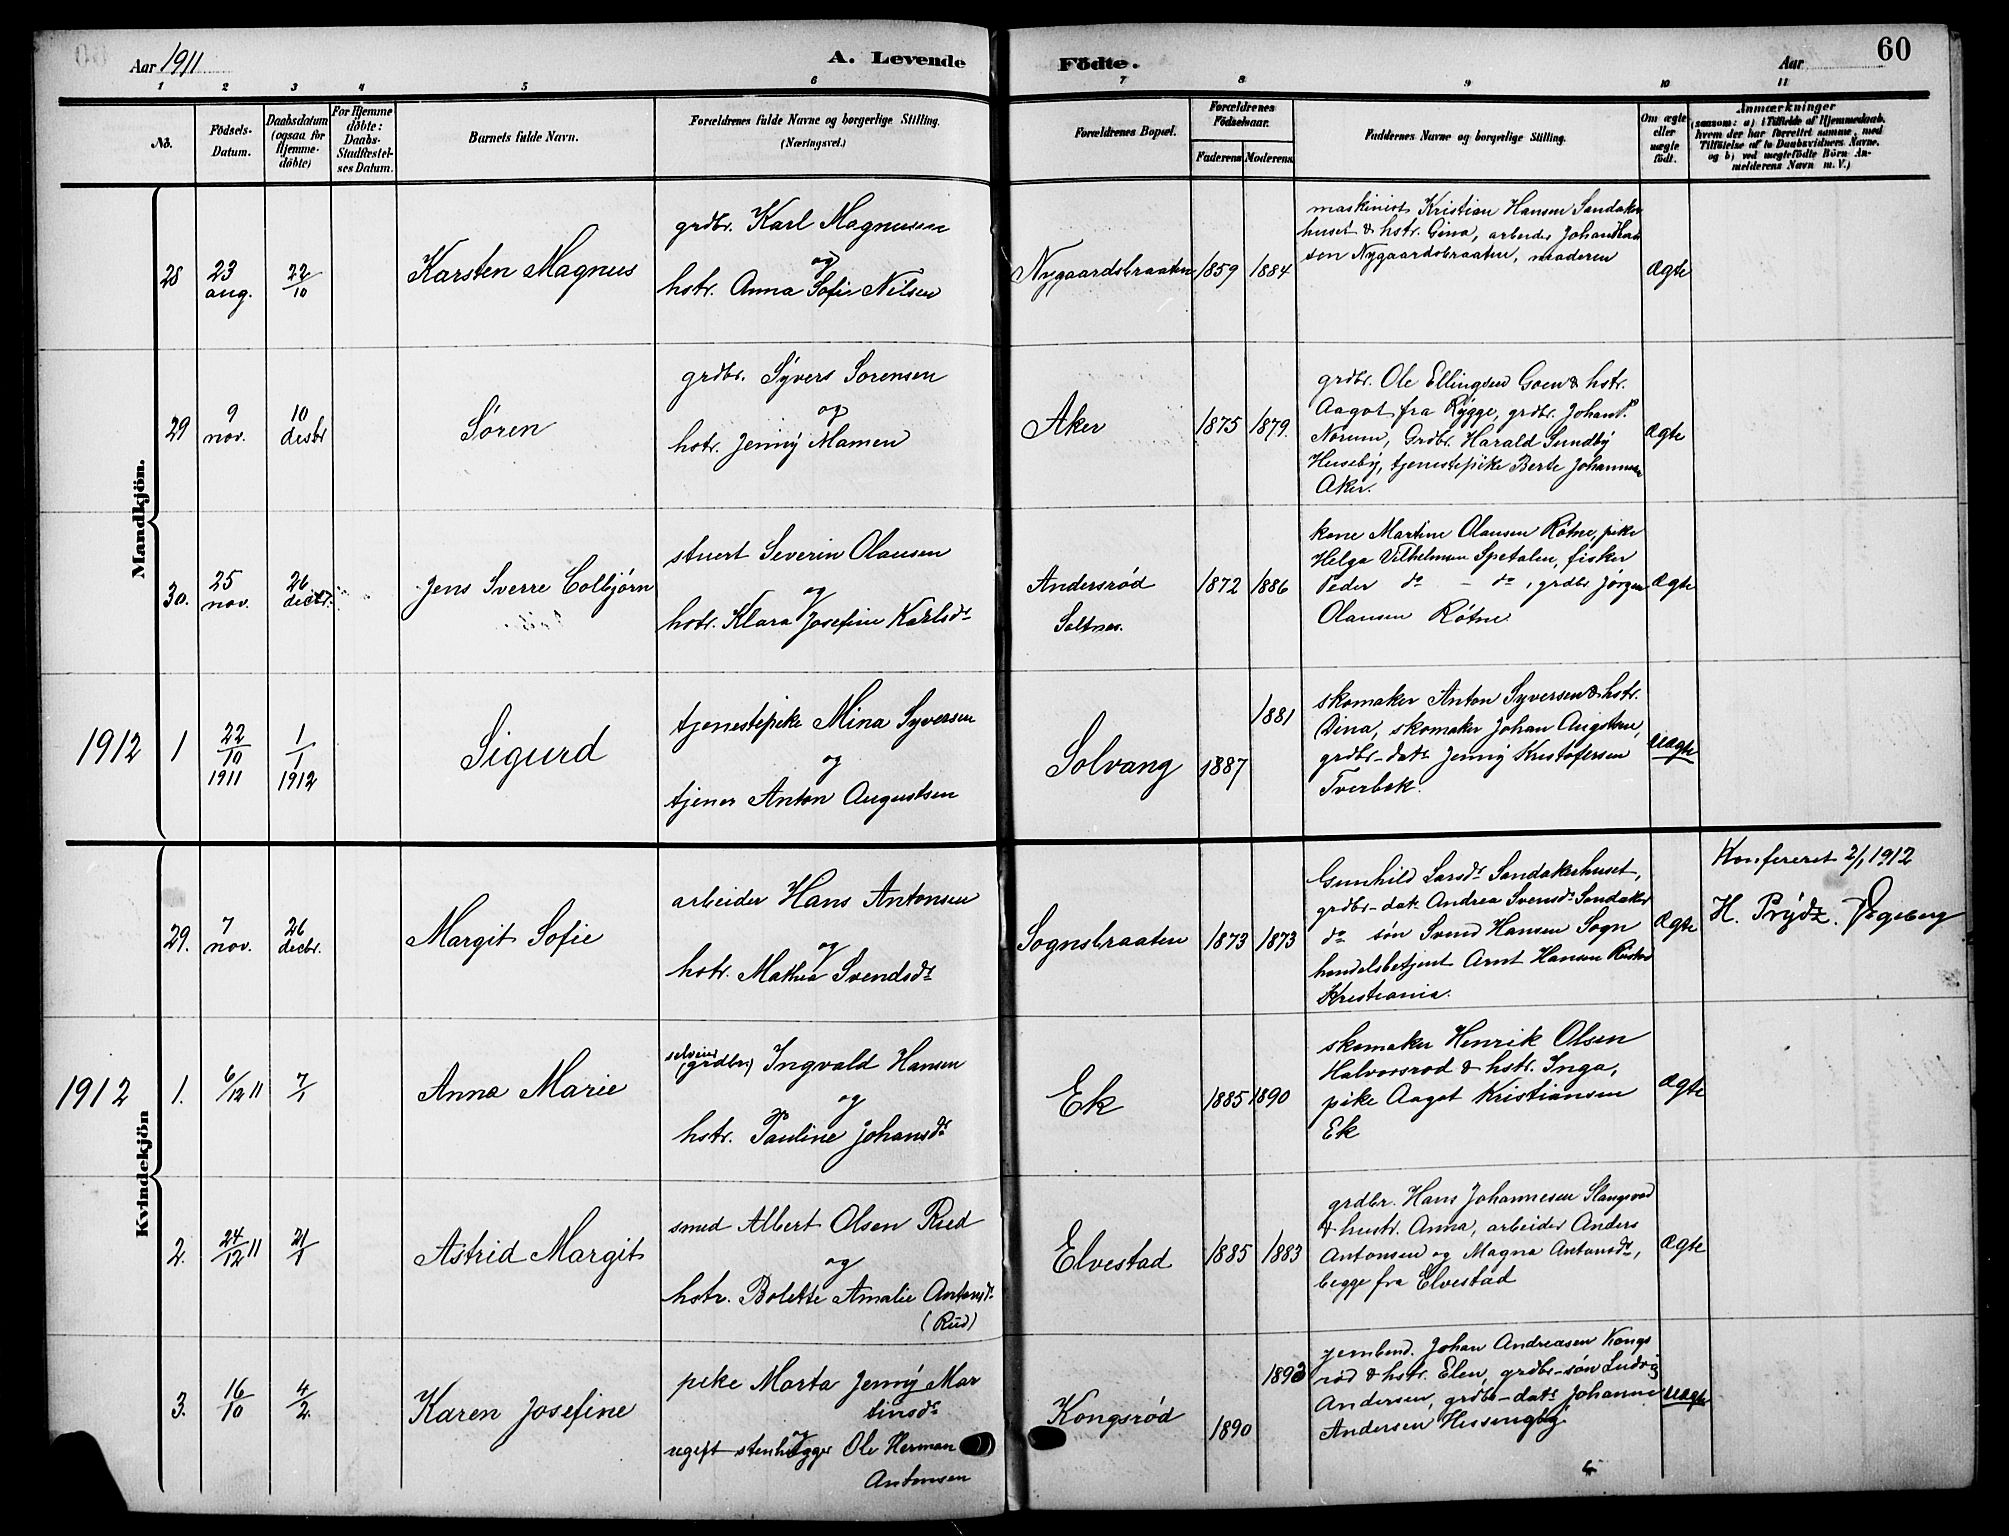 Aar 1911
A. Levende Födte.
Aar
60
1 2 3 4 5 6 7 8 9 10 11
No.
Födsels-
Datum.
Daabsdatum
(ogsaa for
Hjemme-
döbte)
For Hjemme
döbte:
Daabs-
Stadfæstel-
ses Datum.
Barnets fulde Navn.
Forældrenes fulde Navne og borgerlige Stilling.
(Næringsvei.)
Forældrenes Bopæl.
Forældrenes
Födselsaar.
Faderens Moderens
Faddernes Navne og borgerlige Stilling.
Om ægte
eller
uægte
födt.
Anmærkninger
(saasom: a) i Tilfælde af Hjemmedaab,
hvem der har forrettet samme, med
Tilföielse af to Daabsvidners Navne,
og b) ved uægtefödte Börn An-
melderens Navn m. V.)
Mandkjön.
28
23
aug.
22/10
Karsten Magnus
grdbr. Karl Magnusen
og
hstr. Anna Sofie Nilsen
Nygaardsbraaten
1859
1884
maskinist Kristian Hansen Sandaker
huset & hstr. Gina, arbeider Johan
sen Nygaardsbraaten, moderen
Ægte
29
9
nov.
10
decbr
Søren
grdbr. Syvers Sorensen
og
hstr. Jenny Mamen
Aker
1875
1879.
grdbr. Ole Ellingsen Goen & hstr.
Aagot fra Rygge, grdbr. Johan P.
Norum, Grdbr. Harald Sundby
Huseby, tjenestepike Berte Johannesen
Aker.
Ægte
30.
25
nov.
26
decbr.
Jens Sverre Colbjørn
stuert Severin Olausen
og
hstr. Klara Josefine Karlsdr
Andersrød
Saltnes.
1872
1886
kone Martine Olausen Røtne, pike
Helga Vilhelmsen Spetalen, fisker
Peder do - do, grdbr Jørgen
Olausen Røtne
Ægte
1912
1
22/10
1911
1/1
1912
Sigurd
tjenestepike Mina Syversen
og
tjener Anton Augustsen
Solvang
1887
1881
skomaker Anton Syversen & hstr.
Dina, skomaker Johan Augustsen,
grdbr-datr Jenny Kristofersen
Tverbek.
Uægte
Kvindekjön
29.
7
nov.
26
decbr.
Margit Sofie
arbeider Hans Antonsen
og
hstr. Mathea Svendsdr
Sognsbraaten
1873
1873
Gunhild Larsdr Sandakerhuset,
grdbr-datr Andrea Svensdr Sandaker
do søn Svend Hansen Sogn
handelsbetjent Arnt Hansen
Kristiania.
Ægte
Konfereret 2/1 1912
H. Prydz.
1912
1.
6/12 11
7/1
Anna Marie
selveier
(grdbr) Ingvald Hansen
og
hstr. Pauline Johansdr
Ek
1885
1890
skomaker Henrik Olsen
Halvorsrod & hstr. Inga,
pike Aagot Kristiansen
Ek
Ægte
2.
24/12 11
21/1
Astrid Margit
smed Albert Olsen Rud
og
hstr. Bolette Amalie Antonsdr
(Rud)
Elvestad
1885
1883
grdbr. Hans Johannesen Slangsvod
& hustr. Anna, arbeider Anders
Antonsen og Magna Antonsdr,
begge fra Elvestad
Ægte
3.
16/10
4/2.
Karen Josefine
pike Marta Jenny Mar
tinsdr
og
ugift stenhugger Ole Herman
Antonsen
Kongsrød
1890
1893
jernbmd. Johan Andreasen Kongs
rød & hstr. Elen, grdbr-søn Ludvig
Andersen, grdbr-datr Johanne
Andersen Hessengby
Uægte